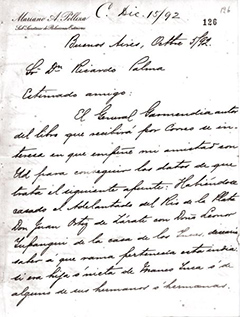 Mariano A. Pelliza
Sub Secretario de Relaciones Exteriores
C. Dic. 15/92
126
126
Buenos Aires, Octbre 5/92.
Sr Dn Ricardo Palma
Estimado amigo:
El General Garmendia autor
del libro que recibirá por Correo se in-
teresa en que empeñe mi amistad con
Ud para conseguir los datos de que
trata el siguiente apunte: Habiéndose
casado el Adelantado del Rio de la Plata
Don Juan Ortiz de Zárate con Doña Leonor
Yupanqui de la casa de los Incas, desearia
saber á que rama pertenecia esta
si era hija ó nieta de Manco Inca ó de
alguno de sus hermanos ó hermanas.